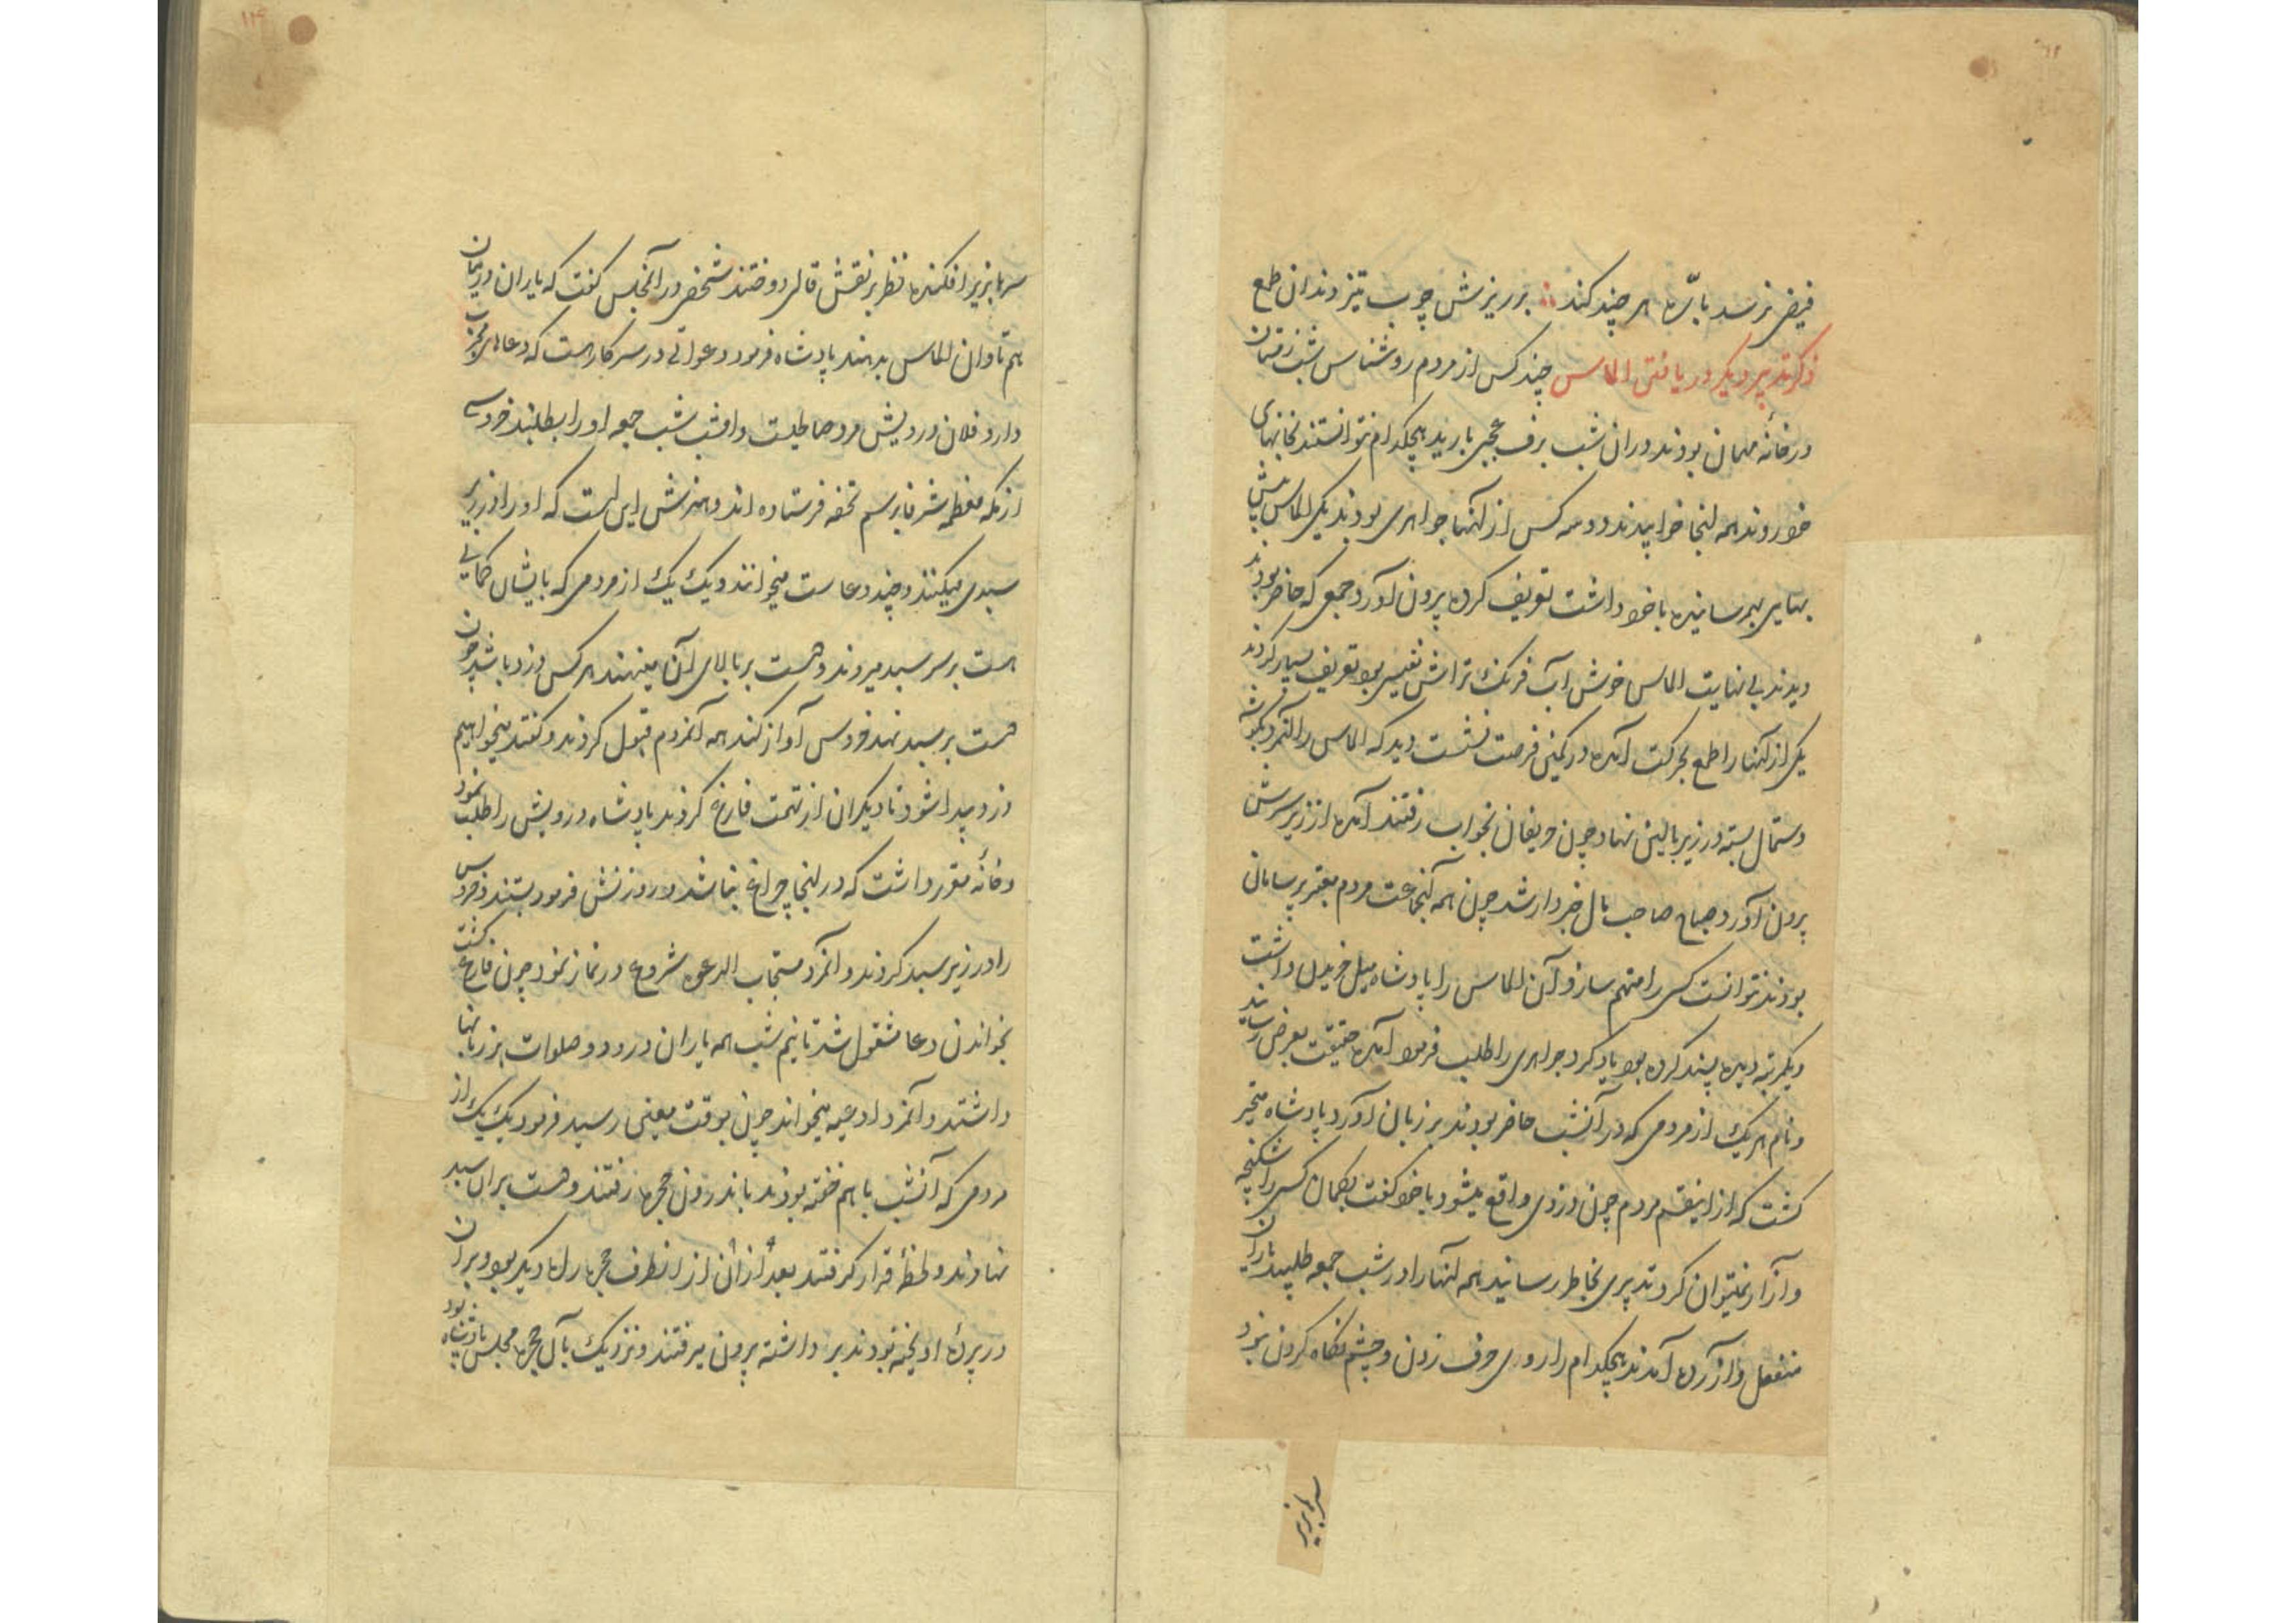 فیض نرسد باره هر چند کند برریزش چوب تیز دندان طمع
ذکر تدبیر دیگر در یافتن الماس چند کس از مردم روشناس شب زمستان
در خانهٔ مهمان بودند در ان شب برف عجبی بارید هیچکدام نتوانستند بخانهای
خود روند همه اینجا خوابیدند دو سه کس از آنها جواهری بودند یکی الماس بیش
بهایی بهمرسانیده با خود داشت تعریف کرده بیرون آورد جمعی که حاضر بودند
دیدند بی نهایت الماس خوش آب فرنگ تراش نفیسی بود تعریف بسیار کردند
یکی از آنها را طمع بحرکت آمده در کمین فرصت نشست دید که الماس را آنمرد بگوشه
دستمال بسته در زیر بالین نهاد چون حریفان بخواب رفتند آمده از زیر سرش
بیرون آورد صباح صاحب مال خبردار شد چون همه آنجماعت مردم معتبر بسامان
بودند نتوانست کسی را متهم سازد آن الماس را پادشاه میل خریدن داشت
دیگمرتبه دیده پسند کرده بود یاد کرد جواهری را طلب فرمود آمده حقیقت بعرض رسانید
و نام هر یک از مردمی که در آنشب حاضر بودند بر زبان آورد پادشاه متحیر
گشت که از اینقسم مردم چون دزدی واقع میشود با خود گفت بگمان کسی را شکنجه
و آزار نمیتوان کرد تدبیری بخاطر رسانید همه آنها را در شب جمعه طلبید یاران
منفعل و آزرده آمدند هیچکدام را روی حرف زدن و چشم نگاه کردن نبود
سرها بزیر افکنده نظر بر نقش قالی دوختند شخصی در آنمجلس گفت که یاران در میان
هم تاوان الماس بدهند پادشاه فرمود دعوائی در سرکار است که دعاهای مجرب
دارد فلان درویش مرد صاحلیست و امشب شب جمعه او را بطلبند خروسی
از مکه معظمه شرفا برسم تحفه فرستاده اند و هنرش این است که او را در زیر
سبدی میکنند و چند دعاست میخوانند و یک یک از مردمی که بایشان گمانی
هست بر سر سبد میروند و دست بر بالای آن مینهند هر کس دزد باشد چون
دست بر سبد نهد خروس آواز کند همه آنمردم قبول کردند و گفتند میخواهیم
دزد پیدا شود تا دیگران از تهمت فارغ گردند پادشاه درویش را طلب نمود
و خانهٔ مقرر داشت که در اینجا چراغ نباشد و روزنش فرمود بستند و خروس
را در زیر سبد کردند و آنمرد مستجاب الدعوه شروع در نماز نمود چون فارغ گشت
بخواندن دعا مشغول شد تا نیم شب همه یاران درود و صلوات بر زبانها
داشتند و آنمرد ادعیه میخواند چون بوقت معینی رسید فرمود یک یک از
مردمی که آنشب با هم خفته بودند باندرون حجره رفتند و دست بران سبد
نهادند و لحظهٔ قرار گرفتند بعد ازان از انطرف حجره راه دیگر بود و بران
در پردهٔ آویخته بودند برداشته بیرون میرفتند و نزدیک بآن حجره مجلس پادشاه بود